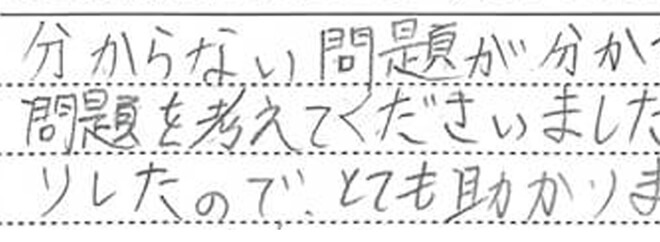 分からない問題が分か
問題を考えてくださいました
りしたので、とても助かりま